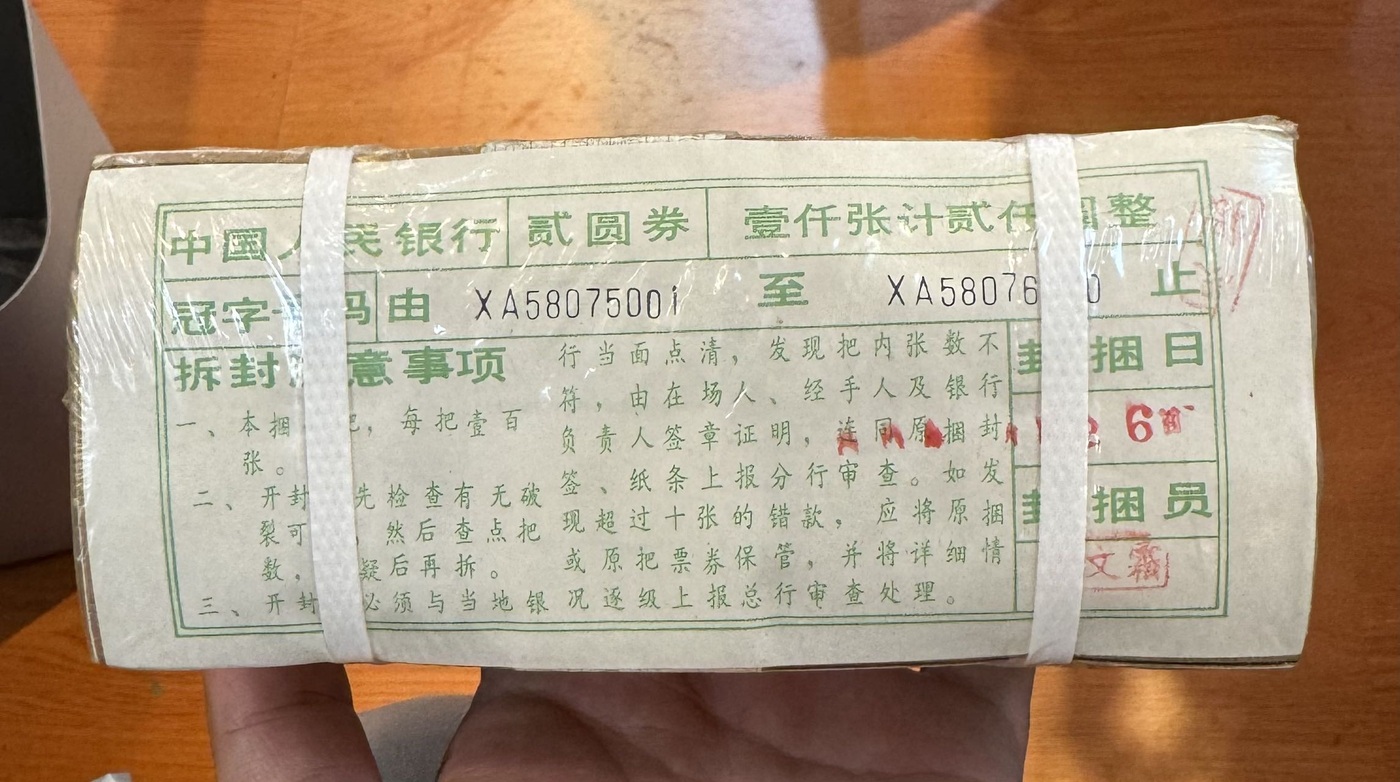 中国人民银行 贰圆券 壹仟张计贰仟圆整
冠字号码 由 XA58075001 至 XA58076 0 止
拆封 意事项
一、本捆 把，每把壹百
张。
二、开封 先检查有无破
裂可 ，然后查点把
数， 疑后再拆。
三、开封 必须与当地银
行当面点清，发现把内张数不
符，由在场人、经手人及银行
负责人签章证明，连同原捆封
签、纸条上报分行审查。如发
现超过十张的错款，应将原捆
或原把票券保管，并将详细情
况逐级上报总行审查处理。
封捆日
6
封捆员
文霜